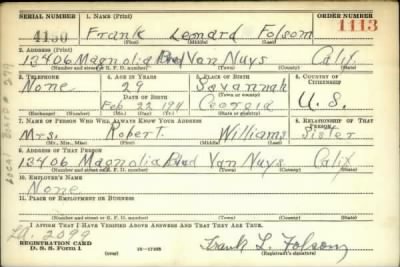 SERIAL NUMBER 1. NAME (Print) ORDER NUMBER
4130 Frank Leonard Folsom 1113
(First) (Middle) (Last)
2. ADDRESS (Print)
13406 Magnolia Blvd Van Nuys Calif.
(Number and street or R. F. D. number) (Town) (County) (State)
3. TELEPHONE 4. AGE IN YEARS 5. PLACE OF BIRTH 6. COUNTRY OF CITIZENSHIP
None 29 Savannah
DATE OF BIRTH (Town or county)
Feb 22 1911 Georgia U. S.
(Exchange) (Number) (Mo.) (Day) (Yr.) (State or country)
7. NAME OF PERSON WHO WILL ALWAYS KNOW YOUR ADDRESS 8. RELATIONSHIP OF THAT PERSON
Mrs. Robert Williams Sister
(Mr., Mrs., Miss) (First) (Middle) (Last)
9. ADDRESS OF THAT PERSON
13406 Magnolia Blvd Van Nuys Calif
(Number and street or R. F. D. number) (Town) (County) (State)
10. EMPLOYER'S NAME
None
11. PLACE OF EMPLOYMENT OR BUSINESS
(Number and street or R. F. D. number) (Town) (County) (State)
I AFFIRM THAT I HAVE VERIFIED ABOVE ANSWERS AND THAT THEY ARE TRUE.
La. 2099
REGISTRATION CARD
D. S. S. Form 1 Frank L. Folsom
(Registrant's signature)
Local Board # 279